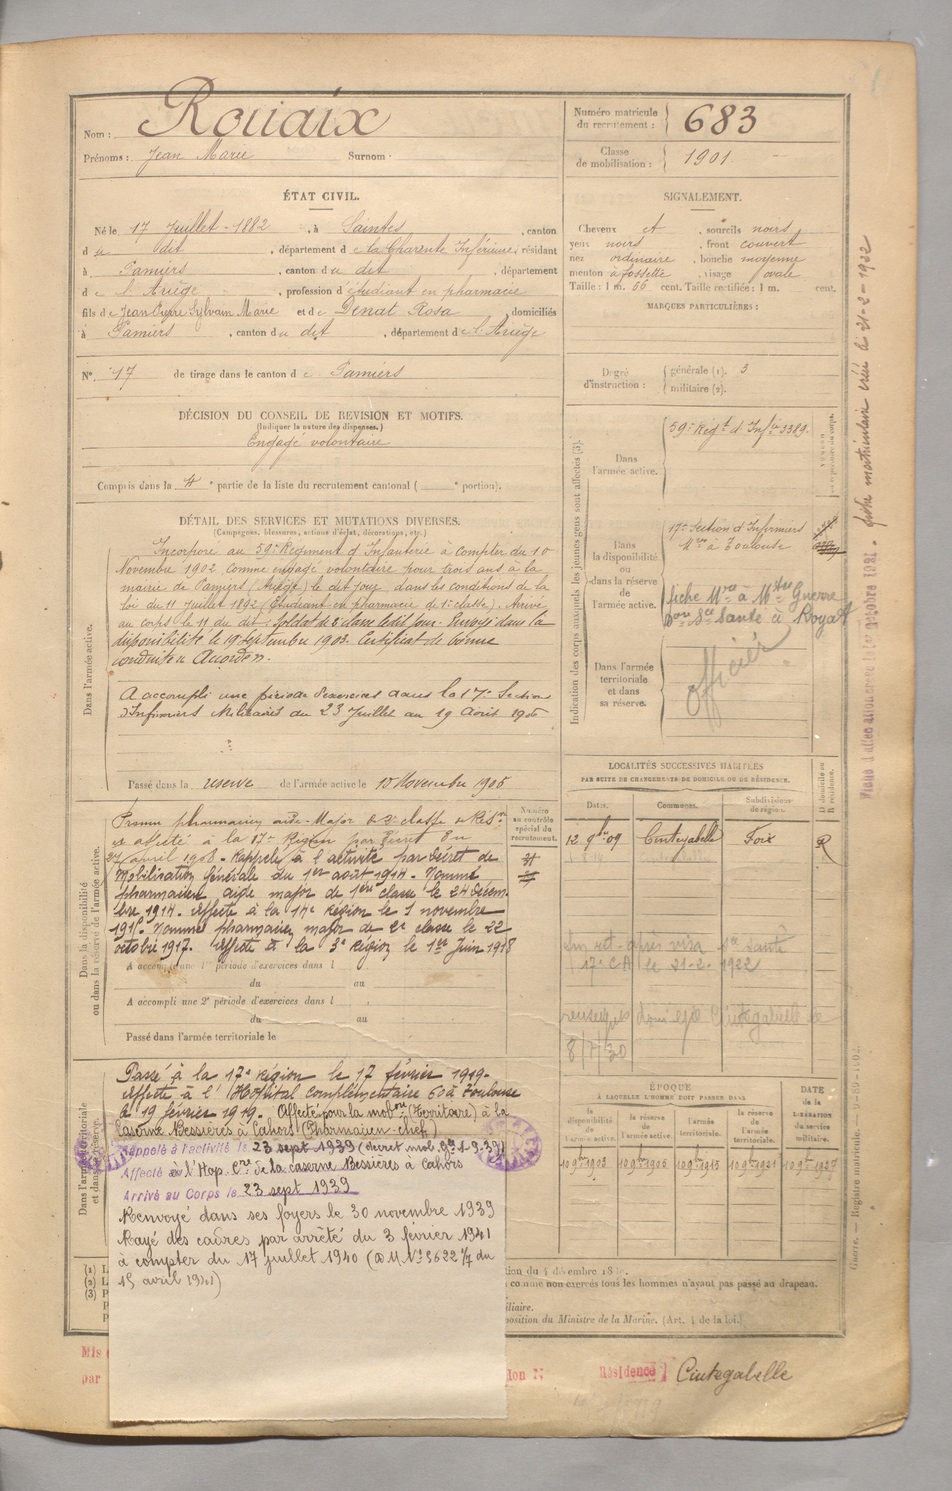 Nom : Rouaix
Prénoms : Jean Marie Surnom ·
Numéro matricule du recrutement : 683
Classe de mobilisation : 1901
ÉTAT CIVIL.
Né le 17 Juillet - 1882, à Saintes, canton
du dit, département de la Charente Inférieure, résidant
à Pamiers, canton du dit, département
de l'Ariège, profession d'étudiant en pharmacie
fils de Jean Sylvain Marie et de Denat Rosa, domiciliés
à Pamiers, canton du dit, département de l'Ariège
N° 17 de tirage dans le canton de Pamiers
SIGNALEMENT.
Cheveux et, sourcils noirs
yeux noirs, front couvert
nez ordinaire, bouche moyenne
menton à fossette, visage ovale
Taille : 1 m. 66 cent. Taille rectifiée : 1 m. cent.
MARQUES PARTICULIÈRES :
Degré d'instruction : générale (1). 3
militaire (2).
DÉCISION DU CONSEIL DE REVISION ET MOTIFS.
(Indiquer la nature des dispenses.)
Engagé volontaire
Compris dans la 4e partie de la liste du recrutement cantonal ( e portion).
DÉTAIL DES SERVICES ET MUTATIONS DIVERSES.
(Campagnes, blessures, actions d'éclat, décorations, etc.)
Dans l'armée active.
Incorporé au 59e Régiment d'Infanterie à compter du 10
Novembre 1902 comme engagé volontaire pour trois ans à la
mairie de Pamiers (Ariège) le dit jour dans les conditions de la
loi du 11 Juillet 1892 (Etudiant en pharmacie de 1e classe). Arrivé
au corps le 11 du dit. Soldat de 2e classe ledit jour. Envoyé dans la
disponibilité le 19 septembre 1903. Certificat de bonne
conduite Accordé.
A accompli une période d'exercices dans la 17e Section
d'Infirmiers Militaires du 23 Juillet au 19 Août 1906
Passé dans la réserve de l'armée active le 10 Novembre 1905
Indication des corps auxquels les jeunes gens sont affectés (3).
Dans l'armée active. 59e Régt d'Infie 3389.
Dans la disponibilité ou dans la réserve de l'armée active.
17e Section d'Infirmiers
Mres à Toulouse
fiche Mre à Mtère Guerre
Don Sce Santé à Royat
Dans l'armée territoriale et dans sa réserve.
officier
Dans la disponibilité ou dans la réserve de l'armée active.
Numéro au contrôle spécial du recrutement.
Promu pharmacien aide-Major de 2e classe de Rés.ve
et affecté à la 17e Région par Décret du
27 avril 1908 - Rappelé à l'activité par Décret de
Mobilisation Générale du 1er août 1914. Nommé
pharmacien aide major de 1ère classe le 24 décem-
bre 1914. Affecté à la 17e Région le 1 novembre
Nommé pharmacien major de 2e classe le 22
octobre 1917. Affecté à la 3e Région le 1er Juin 1918
A accompli une 1re période d'exercices dans l
du au
A accompli une 2e période d'exercices dans l
du au
Passé dans l'armée territoriale le
LOCALITÉS SUCCESSIVES HABITÉES
PAR SUITE DE CHANGEMENTS DE DOMICILE OU DE RÉSIDENCE.
Dates. Communes. Subdivisions de région. D domicile ou R résidence.
12 9bre 09 Cintegabelle Foix R
17e CA le 21-2-1922
8/7/30
Passé à la 17e Région le 17 février 1919.
Affecté à l'Hôpital complémentaire 60 à Toulouse
le 19 février 1919. Affecté pour la mobon (Territoire) à la
Caserne Bessières à Cahors (Pharmacien-chef)
Rappelé à l'activité le 23 sept 1939 (décret mob. gle 1-9-39)
Affecté à l'Hop. Cre de la caserne Bessières à Cahors
Arrivé au Corps le 23 sept 1939
Renvoyé dans ses foyers le 30 novembre 1939
Rayé des cadres par arrêté du 3 février 1941
à compter du 17 juillet 1940 (DM N° 3622 1/7 du
15 avril 1941)
ÉPOQUE
À LAQUELLE L'HOMME DOIT PASSER DANS
la disponibilité de l'armée active. la réserve de l'armée active. l'armée territoriale. la réserve de l'armée territoriale.
DATE de la LIBÉRATION du service militaire.
10 9bre 1903 10 9bre 1905 10 9bre 1915 10 9bre 1921 10 9bre 1927
comme non exercés tous les hommes n'ayant pas passé au drapeau.
position du Ministre de la Marine. (Art. 4 de la loi.)
Résidence Cintegabelle
fiche matriculaire créée le 21-2-1922